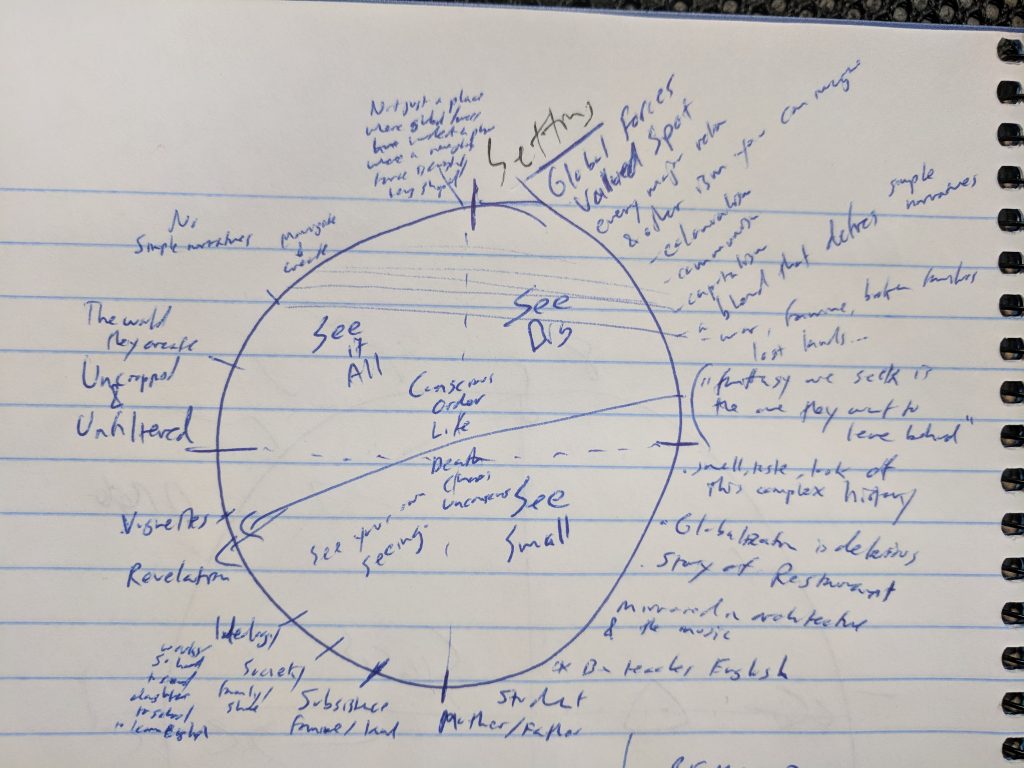 Not just a place
where global forces
have
where a
force is
being shaped
Setting
Global Forces
Valued Spot
every major
& other ism you can imagine
- colonialism
- communism
- capitalism
= blend that defies simple
narratives
= war, famine, broken families
lost lands...
"fantasy we seek is
the one they want to
leave behind"
. smell, taste, look of
this complex history
• Globalization is delicious
. Story of Restaurant
mirrored in architecture
& the music
* teaches English
Student
Mother/Father
Subsistence
Famine/land
Society
family/
Ideology
works
So hard
to send
daughter
to school
"learn English
Revelation
Vignettes
Unfiltered
&
Uncropped
The world
they create
No
Simple narratives
&
create
See
it
All
See
Big
Conscious
Order
Life
Death
Chaos
Unconscious
See your own
Seeing
See
Small